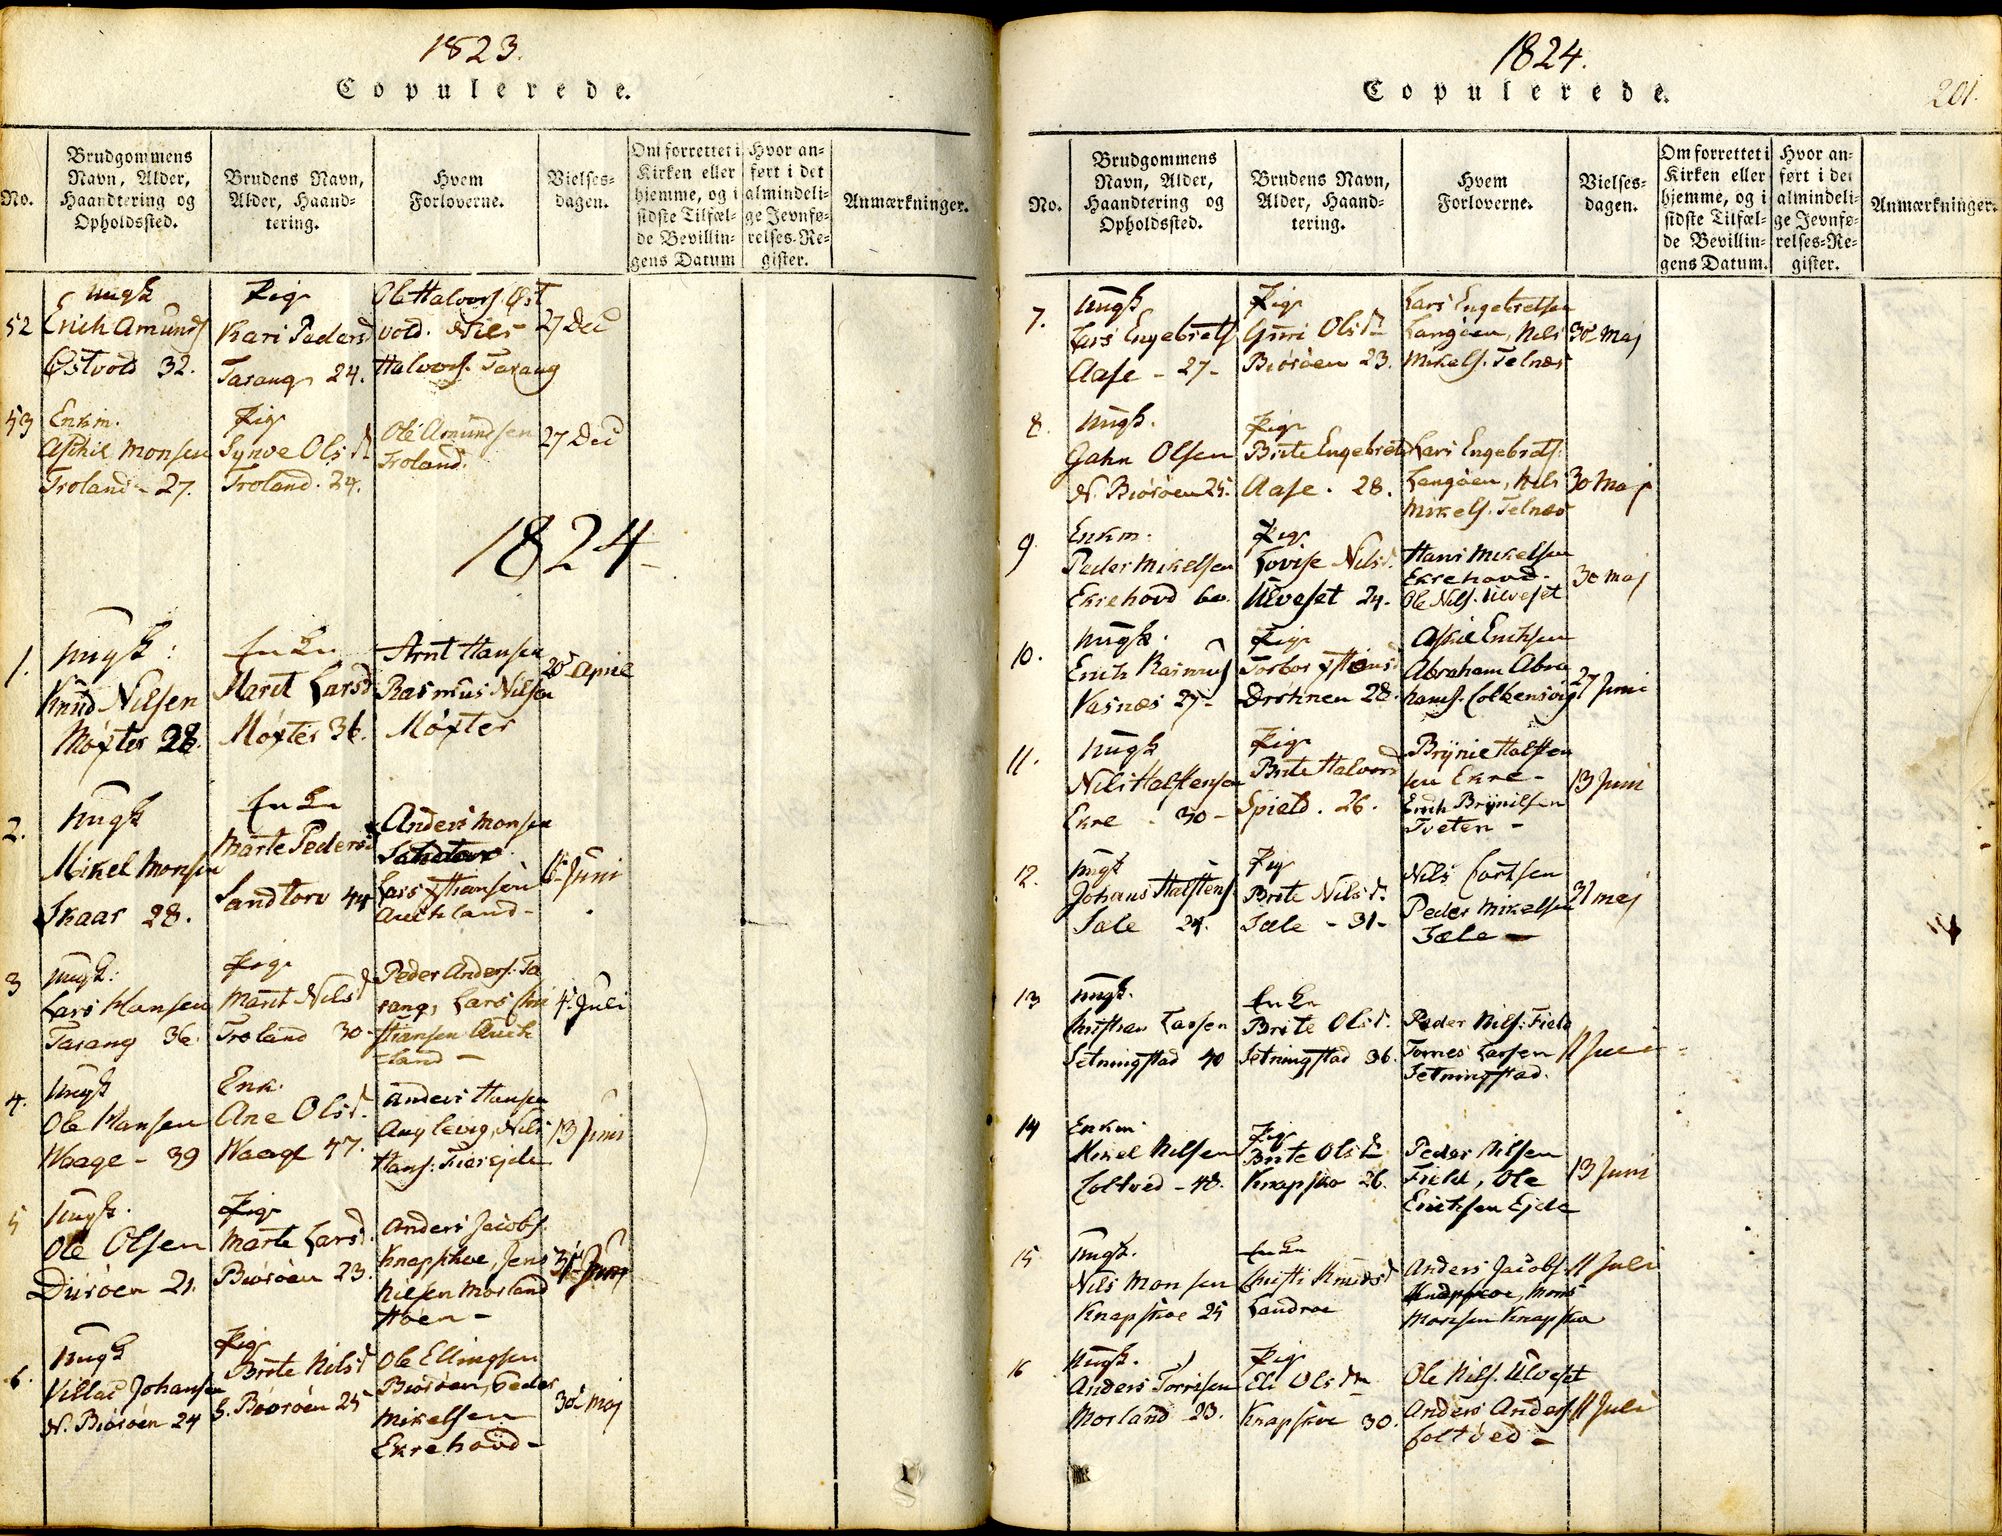 1823.
Copulerede.
No.
Brudgommens
Navn, Alder,
Haandtering og
Opholdssted.
Brudens Navn,
Alder, Haand-
tering.
Hvem
Forloverne.
Vielses-
dagen.
Om forrettet i
Kirken eller
hjemme, og i
sidste Tilfæl-
de Bevillin-
gens Datum
Hvor an-
ført i det
almindeli-
ge Jevnfø-
relses-Re-
gister.
Anmærkninger.
52
Ungk
Erich Amunds
Østvold 32.
Pige
Kari Pedersd
Tarang 24.
Ole Halvors. Øst
vold. Niels
Halvors. Tarang
27 Dec
53
Enkm.
Askil Monsen
Troland - 27.
Pige
Synve Olsd
Troland. 24.
Ole Amundsen
Troland.
27 Dec
1824
1.
Ungk:
Knud Nilsen
Møxter 28.
Enke
Marit Larsd
Møxter 36.
Arnt Hansen
Rasmus Nilsen
Møxter
20 April
2.
Ungk
Mikel Monsen
Skaar 28.
Enke
Marte Pedersd
Sandtorv 44
Anders Monsen
Sandtorv
Lars Xstiansen
Auchland -
Juni
3
Ungk:
Lars Hansen
Tarang 36.
Pige
Marit Nilsd
Troland 30-
Peder Anders. Ta
rang, Lars Chri
stiansen Auch
land -
4. Juli
4.
Ungk
Ole Hansen
Waage - 39
Enk.
Ane Olsd.
Waage 47.
Anders Hansen
Nils
Hans.
13 Juni
5
Ungk.
Ole Olsen
Duröen 21.
Pige
Marte Larsd.
Biöröen 23.
Anders Jacobs.
Knapskoe, Jens
Nilsen Morland
Höen -
6.
Ungk
Villas Johansen
N. Biöröen 24
Pige
Brite Nilsd
S. Biöröen 25
Ole Ellingsen
Biöröen, Peder
Mikelsen
Ekrehovd -
30 Maj
1824.
Copulerede.
201.
No.
Brudgommens
Navn, Alder,
Haandtering og
Opholdssted.
Brudens Navn,
Alder, Haand-
tering.
Hvem
Forloverne.
Vielses-
dagen.
Om forrettet i
Kirken eller
hjemme, og i
sidste Tilfæl-
de Bevillin-
gens Datum.
Hvor an-
ført i det
almindeli-
ge Jevnfø-
relses-Re-
gister.
Anmærkninger.
7.
Ungk
Lars Engebrets
Aase - 27-
Pige
Guri Olsd
Biöröen 23.
Lars Engebretsen
Langöen, Nils
Mikels. Telnæs
30 Maj
8.
Ungk.
Gahn Olsen
N. Biöröen 25.
Pige
Brite Engebretsd
Aase. 28.
Lars Engebrets.
Langöen, Nils
Mikels. Telnæs
30 Maj
9.
Enkm.
Peder Mikelsen
Ekrehovd 60.
Pige
Lovise Nilsd.
Ulveset 24.
Hans Mikelsen
Ekrehovd.
Ole Nils. Ulveset
30 Maj
10.
Ungk.
Erich Rasmus
Vasnæs 27-
Pige
Torbor Xstiansd
Drönen 28.
Askil Erichsen
Abraham Abra
hams.
27 Juni
11.
Ungk
Nils Halstensen
Ekre - 30-
Pige
Brite Halvorsd
Spield. 26.
Brynil Halsten
sen Ekre -
Erich Brynilsen
Tveten -
13 Juni
12.
Ungk
Johans Halstens.
Sæle 24.
Pig
Brite Nilsd.
Sæle - 31-
Nils
Peder Mikelsen
Sæle -
31 Maj
13
Ungk.
Christian Larsen
Setningstad 40
Enke
Brite Olsd.
Setningstad 36.
Peder Nils. Field
Tomes Larsen
Setningstad.
11 Juli
14
Enkm.
Mikel Nilsen
Toltved - 48.
Pig
Brite Olsd
Knapsko 26.
Peder Nilsen
Field, Ole
Erichsen Ejde
13 Juni
15
Ungk.
Nils Monsen
Knapskoe 25
Enke
Christi Knudsd
Landroe
Anders Jacobs.
Knapskoe, Mons
Monsen Knapskoe
11 Juli
16
Ungk.
Anders Torrisen
Morland 23.
Pige
Eli Olsd
Knapskoe 30.
Ole Nils. Ulveset
Anders Anders.
Toltved -
11 Juli